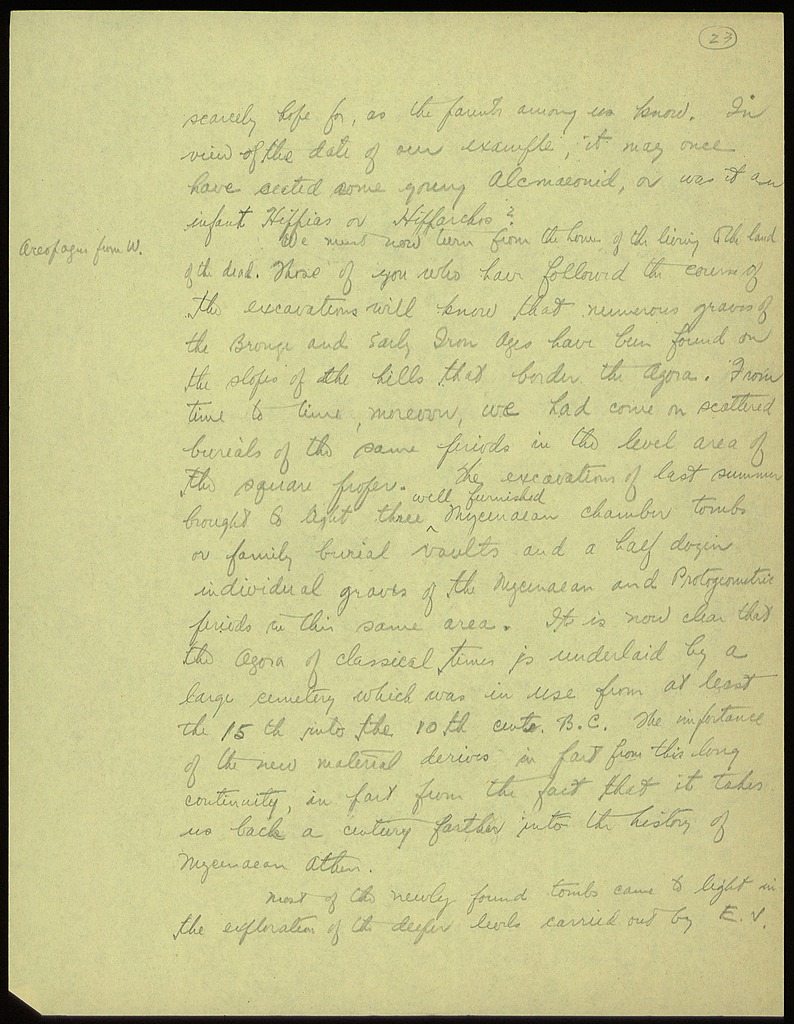 23
scarcely hope for, as the parents among us know. In
view of the date of our example, it may once
have seated some young Alcmaeonid, or was it an
infant Hippias or Hipparchos?
Areopagus from W.
We must now turn from the homes of the living to the land
of the dead. Those of you who have followed the course of
the excavations will know that numerous graves of
the Bronze and Early Iron Ages have been found on
the slopes of the hills that border the Agora. From
time to time, moreover, we had come on scattered
burials of the same periods in the level area of
the square proper. The excavations of last summer
well furnished
brought to light three ^ Mycenaean chamber tombs
or family burial vaults and a half dozen
individual graves of the Mycenaean and Protogeometric
periods in this same area. It is now clear that
the Agora of classical times is underlaid by a
large cemetery which was in use from at least
the 15th into the 10th cents. B.C. The importance
of the new material derives in part from this long
continuity, in part from the fact that it takes
us back a century farther into the history of
Mycenaean Athens.
Most of the newly found tombs came to light in
the exploration of the deeper levels carried out by E. V.